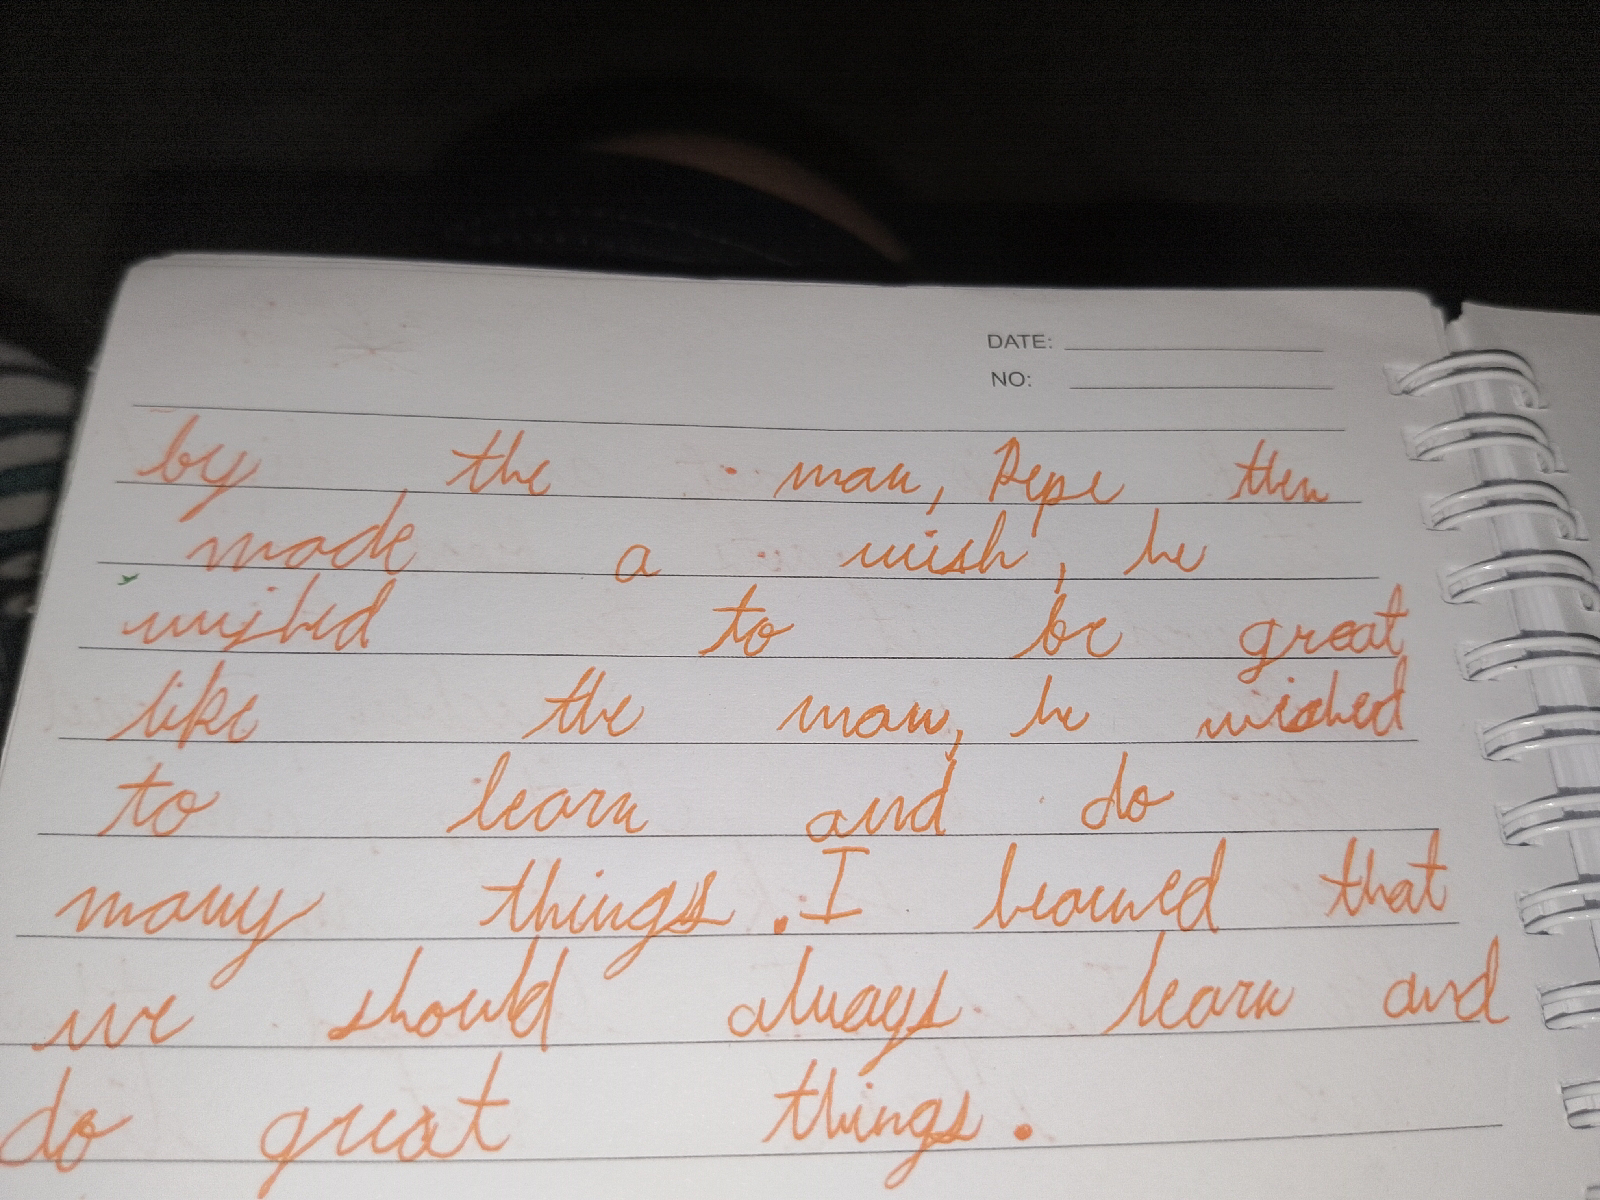 DATE:
NO:
by the man, Pepe then
made a wish, he
wished to be great
like the man, he wished
to learn and do
many things. I learned that
we should always learn and
do great things.